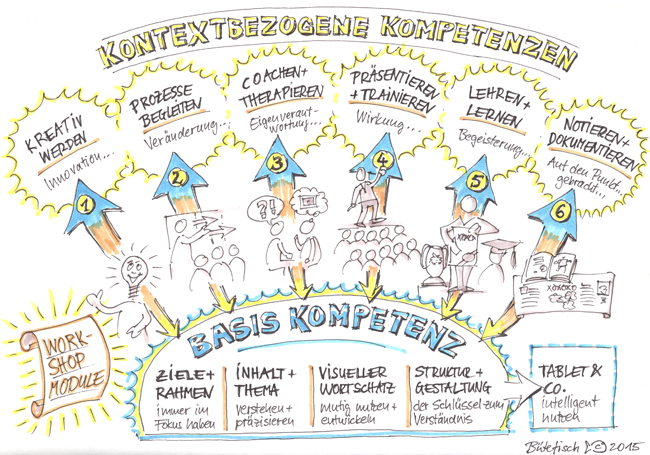 KONTEXTBEZOGENE KOMPETENZEN
KREATIV
WERDEN
Innovation...
PROZESSE
BEGLEITEN
Veränderung...
COACHEN+
THERAPIEREN
Eigenverant-
wortung...
PRÄSENTIEREN
+ TRAINIEREN
Wirkung...
LEHREN+
LERNEN
Begeisterung...
NOTIEREN+
DOKUMENTIEREN
Auf den Punkt
gebracht...
1
2
3
4
5
6
?!
XOXOXO
WORK-
SHOP
MODULE
BASIS KOMPETENZ
ZIELE+
RAHMEN
immer im
Fokus haben
INHALT+
THEMA
verstehen+
präzisieren
VISUELLER
WORTSCHATZ
mutig nutzen+
entwickeln
STRUKTUR+
GESTALTUNG
der Schlüssel zum
Verständnis
TABLET &
CO.
intelligent
nutzen
© 2015